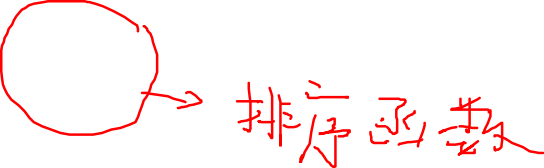 排序函数